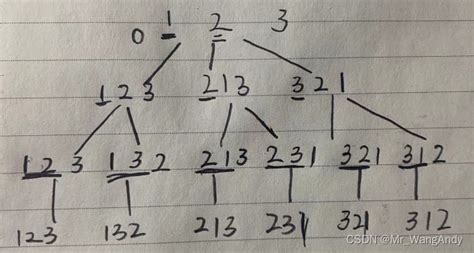 0 1 2 3
123 213 321
123 132 213 231 321 312
123 132 213 231 321 312
CSDN @Mr_WangAndy